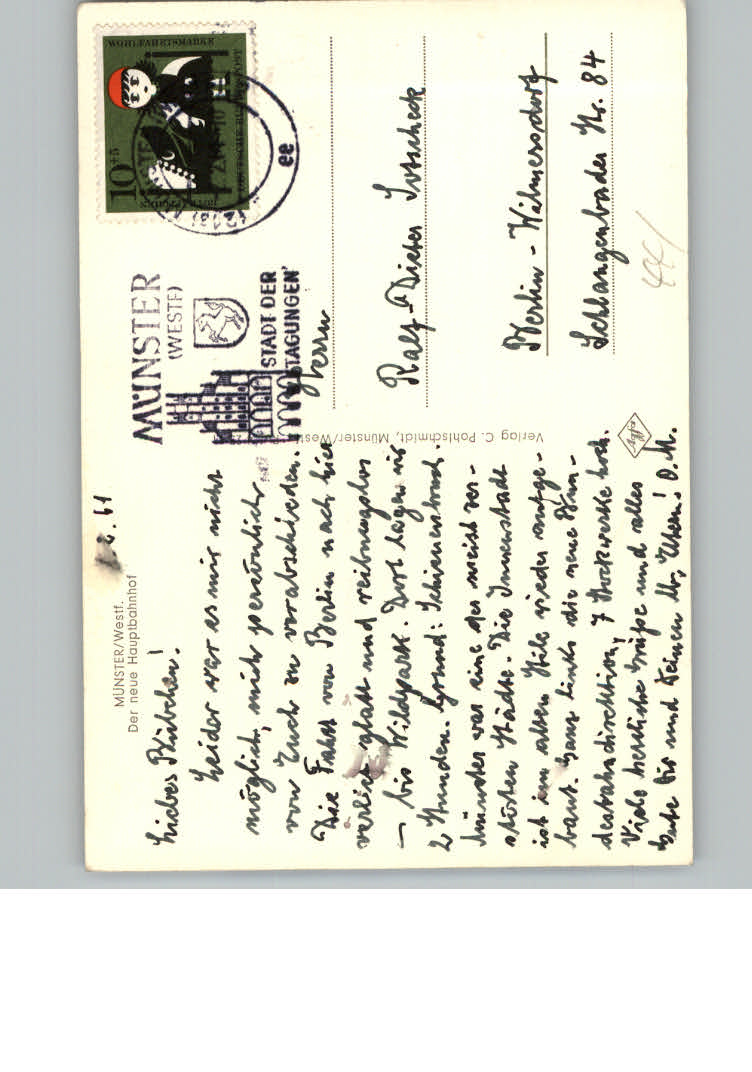 MÜNSTER/Westf.
Der neue Hauptbahnhof
61
Liebes Bübchen!
Leider war es mir nicht
möglich, mich persönlich
von Euch zu verabschieden.
Die Fahrt von Berlin nach hier
verlief glatt und reibungslos
– bis Wildpark. Dort lagen wir
2 Stunden. Grund: Schienenbruch.
Münster war eine der meist zer-
störten Städte. Die Innenstadt
ist im alten Stile wieder aufge-
baut. Ganz links die neue Bun-
desbahndirektion, 7 Stockwerke hoch.
Viele herzliche Grüße und alles
Gute Dir und Deinen lb. Eltern! O.M.
Verlag C. Pohlschmidt, Münster/Westf.
Agfa
MÜNSTER
(WESTF)
STADT DER
TAGUNGEN
WOHLFAHRTSMARKE
10+5
DEUTSCHE BUNDESPOST
ROTKÄPPCHEN
ee
Herrn
Ralf-Dieter
Berlin-Wilmersdorf
Schlangenbader Str. 84